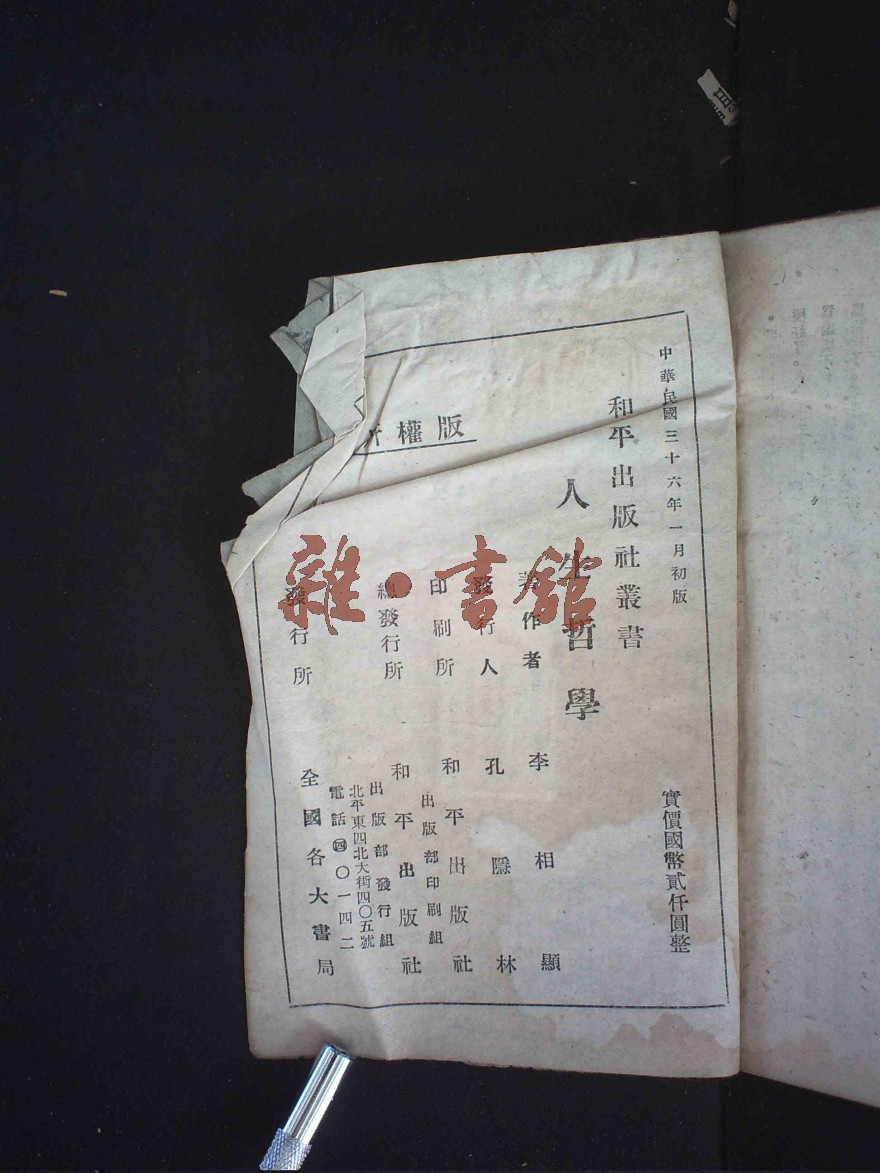 中華民國三十六年一月初版
實價國幣貳仟圓整
和平出版社叢書
人生哲學
著作者 李相顯
發行人 孔隱林
印刷所 和平出版社
出版部印刷組
總發行所 和平出版社
出版部發行組
北平東四北大街四〇五號
電話㊃〇一四二
發行所 全國各大書局
版權所
雜·書館